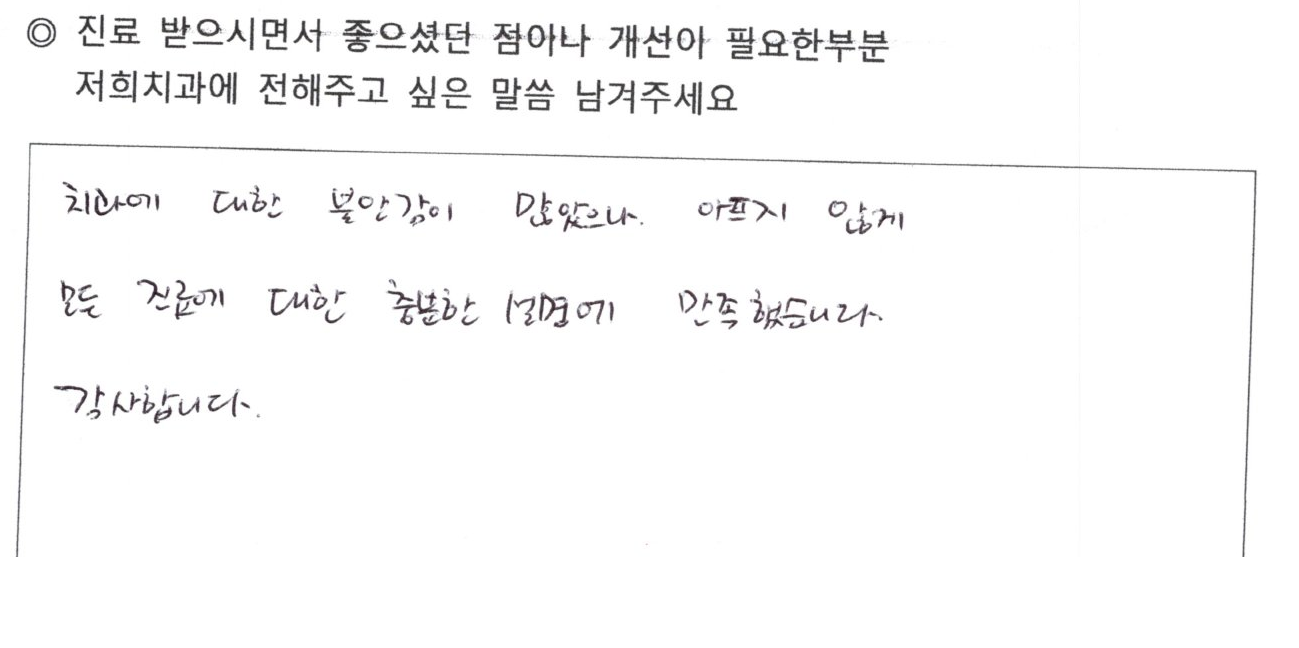 ◎ 진료 받으시면서 좋으셨던 점이나 개선이 필요한부분
저희치과에 전해주고 싶은 말씀 남겨주세요
치과에 대한 불안감이 많았으나. 아프지 않게
모든 진료에 대한 충분한 설명에 만족했습니다.
감사합니다.